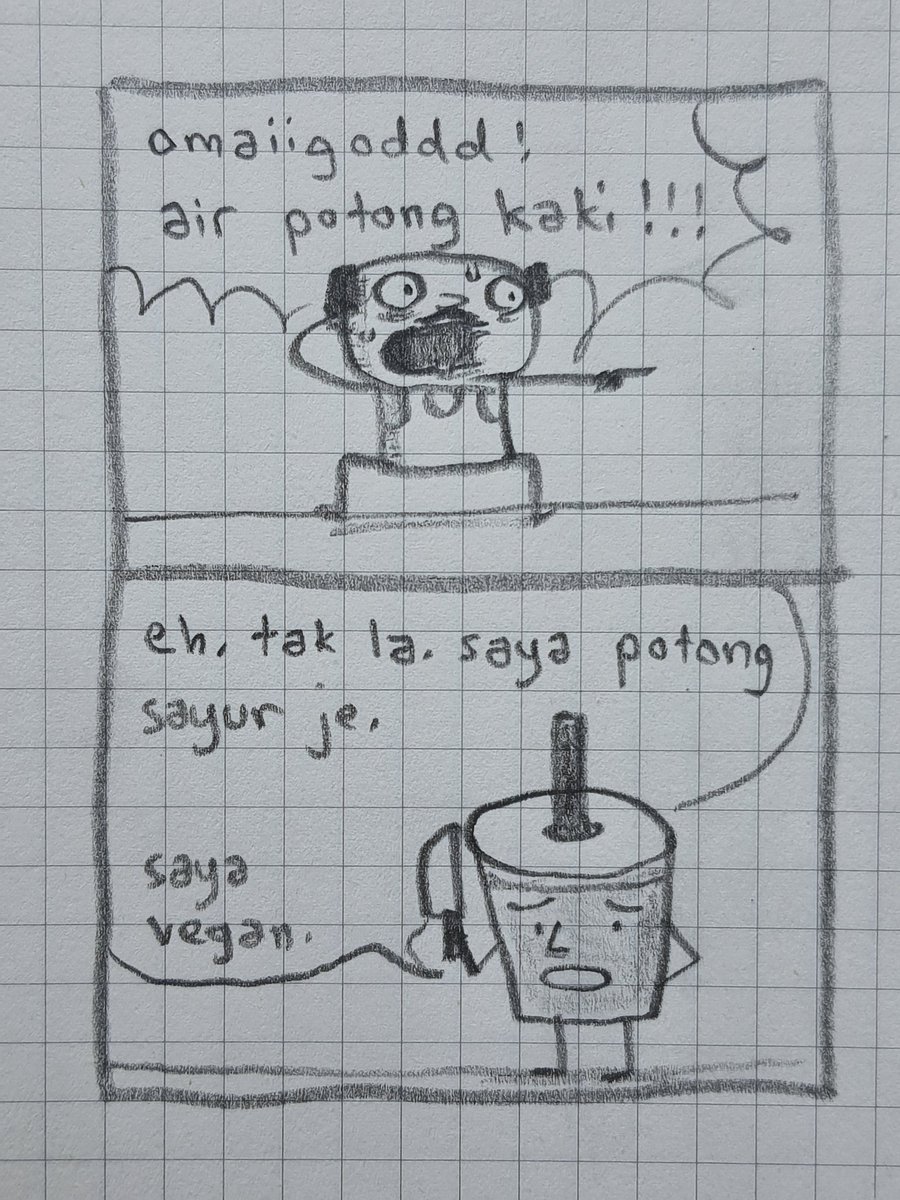 omaiigoddd!
air potong kaki!!!
eh, tak la. saya potong
sayur je.
saya
vegan.